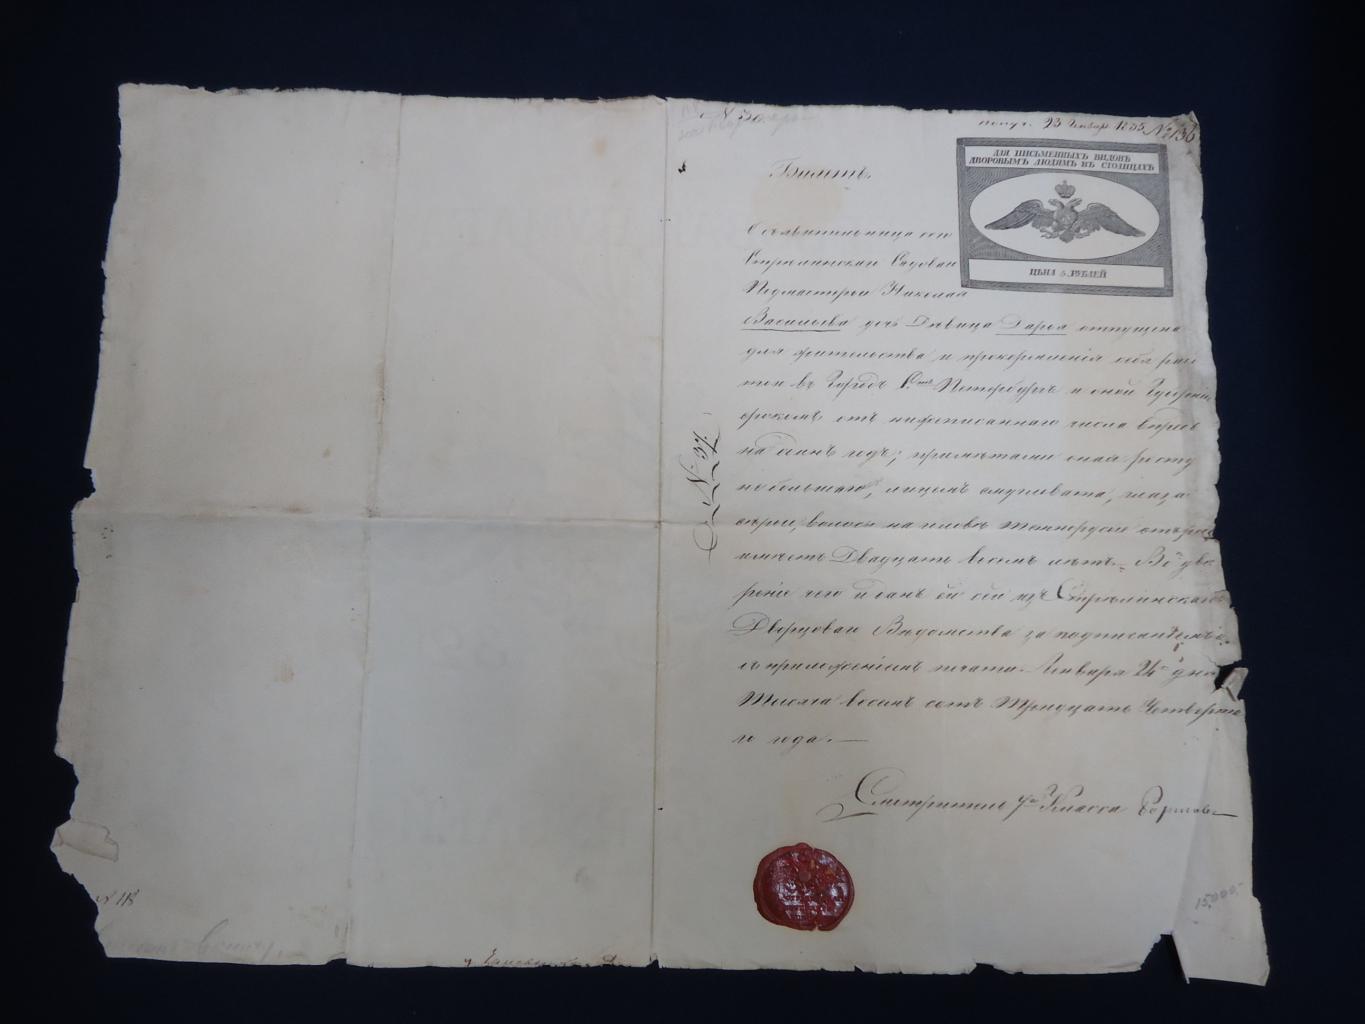 получ. 23 Январ. 1835 № 136
ДЛЯ ПИСЬМЕННЫХЪ ВИДОВЪ
ДВОРОВЫМЪ ЛЮДЯМЪ ВЪ СТОЛИЦАХЪ
ЦѢНА 5 РУБЛЕЙ
Билетъ.
Объявительница сего
Стрѣлинскаго Садоваго
Подмастерья Николая
Васильева дочь Дѣвица Дарья отпущена
для жительства и прокормленія себя рабо
тою въ Городъ С. Петербургъ и оной Губерніи
срокомъ отъ нижеписаннаго числа впредь
на одинъ годъ; примѣтами оная росту
небольшаго, лицомъ смугловата, глаза
сѣрые, волосы на головѣ темнорусые отъ роду
имѣетъ Двадцать восемь лѣтъ. Во увѣ
реніе чего и данъ ей сей изъ Стрѣлинскаго
Дворцоваго Вѣдомства за подписаніемъ и
съ приложеніемъ печати. Января 24 дня
Тысяча восемь сотъ Тридцать Четверта
го года.
Смотритель 7го Класса
№ 37.
№ 118
15,000-